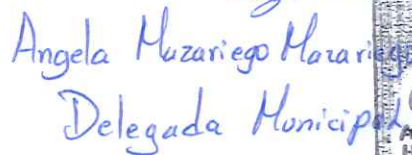 Angela Mazariego Mazariego
Delegada Municipal